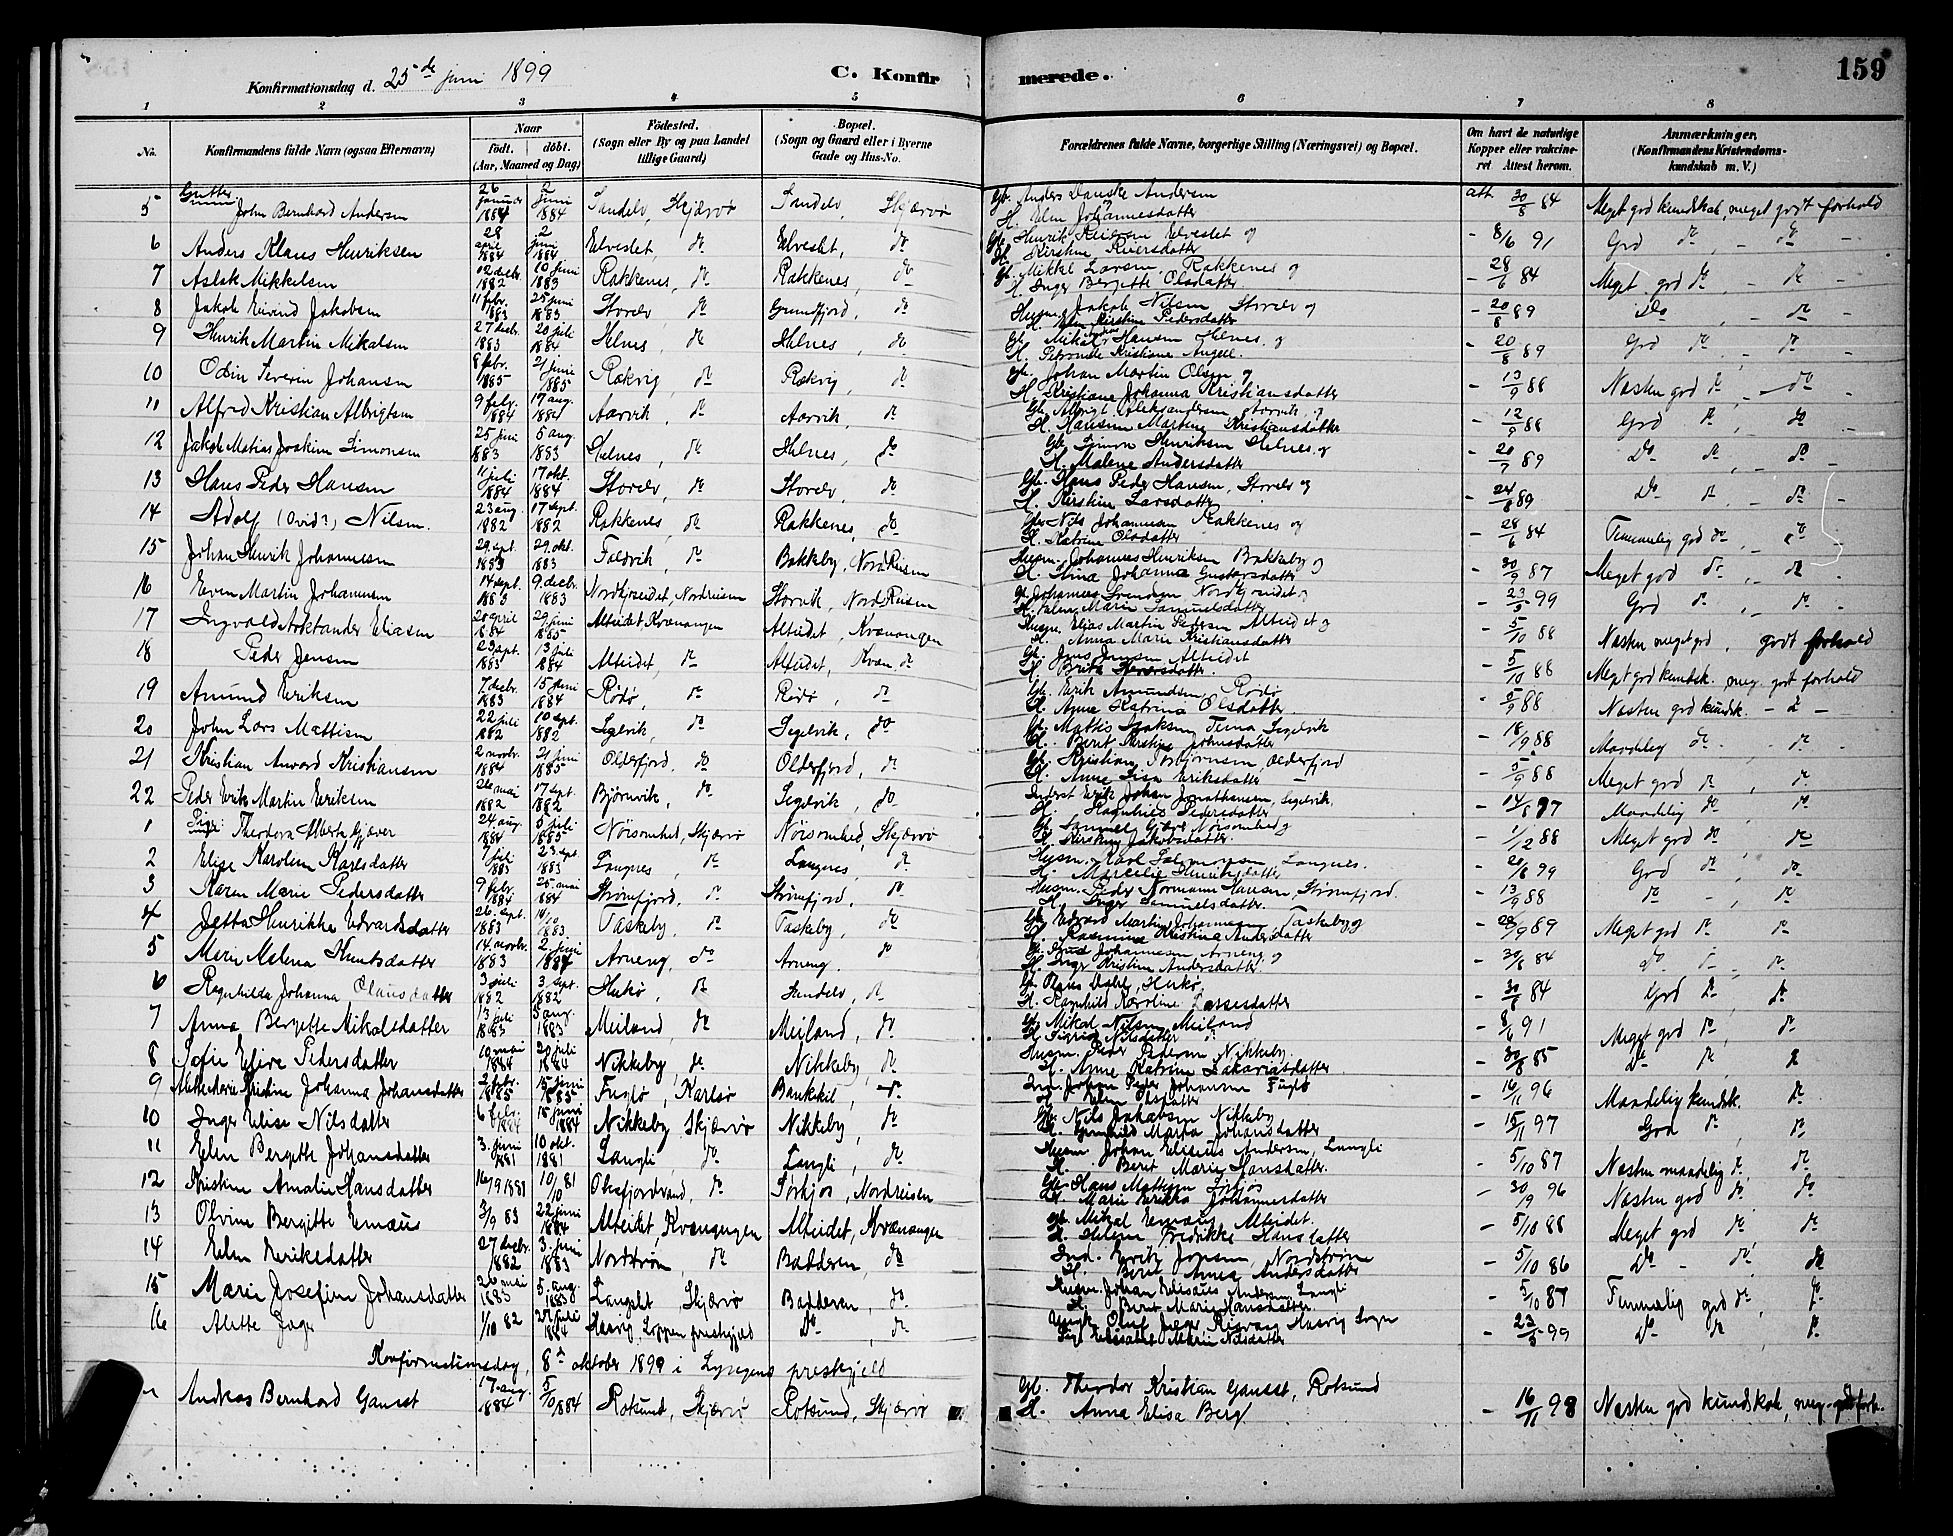 Konfirmationsdag d. 25de juni 1899
C. Konfirmerede.
159
1 2 3 4 5 6 7 8
No. Konfirmandens fulde Navn (ogsaa Efternavn) Naar født. døbt. (Aar, Maaned og Dag) Fødested. (Sogn eller By og paa Landet tillige Gaard) Bopæl. (Sogn og Gaard eller i Byerne Gade og Hus-No. Forældrenes fulde Navne, borgerlige Stilling (Næringsvei) og Bopæl. Om havt de naturlige Kopper eller vakcineret Attest herom. Anmærkninger. (Konfirmandens Kristendomskundskab m. V.)
Gutter
5 John Bernhard Andersen 26 januar 1884 2 juni 1884 Sandelv, Skjærvø Sandelv, Skjærvø Gb. Anders Danske Andersen H. Elen Johannesdatter att. 30/8 84 Meget god kundskab, meget godt forhold
6 Anders Klaus Henriksen 28 april 1884 2 juni 1884 Elveslet, do Elveslet, do Gb. Henrik Elveslet og H. Kirstine - 8/6 91 God do - do -
7 Aslak Mikkelsen 12 decbr. 1882 10 juni 1883 Rakkenes, do Rakkenes, do Gb. Mikkel Larsen Rakkenes og H. Inger Bergitte Olsdatter - 28/6 84 Meget god do, - do -
8 Jakob Eivind Jakobsen 11 febr. 1883 25 juni 1883 Storelv, do Grundfjord, do Husm. Jakob Nilsen Storelv og H. Elen Kirstine Pedersdatter - 20/8 89 Do, - do -
9 Henrik Martin Mikalsen 27 decbr. 1883 20 juli 1884 Helnes, do Helnes, do Gb. Mikal Hansen Helnes og H. Petronele Kristiane Angell. - 20/8 89 God do - do -
10 Odin Severin Johansen 8 febr. 1885 21 juni 1885 Rakvig, do Rakvig, do Gb. Johan Martin Olsen og H. Kristiane Johanna Kristiansdatter - 13/9 88 Næsten god do, - do
11 Alfred Kristian Albrigtsen 9 febr. 1884 17 aug. 1884 Aarvik, do Aarvik, do Gb. Albrigt Aleksandersen Aarvik og H. Hansine Martine Kristiansdatter - 12/9 88 God do, do
12 Jakob Matias Joakim Simonsen 25 juni 1883 5 aug. 1883 Helnes, do Helnes, do Gb. Simon Henriksen Helnes og H. Malene Andersdatter - 20/7 89 Do do, - do -
13 Hans Peder Hansen 11 juli 1884 17 okt. 1884 Storelv, do Storelv, do Gb. Hans Peder Hansen, Storelv og H. Kirstine Larsdatter - 24/8 89 Do do, - do -
14 Adolf (Ovid?) Nilsen. 23 aug. 1882 17 sept. 1882 Rakkenes, do Rakkenes, do Gb. Nils Johannesen Rakkenes og H. Katrine Olsdatter - 28/6 84 Temmelig god do, - do -
15 Johan Henrik Johannesen 29. sept. 1883 29. okt. 1883 Faldvik, do Bakkeby, Nord Reisen Husm. Johannes Henriksen Bakkeby og H. Johanna Gustavsdatter - 30/9 87 Meget god do, do -
16 Even Martin Johannesen 14 sept. 1883 9. decbr. 1883 Nordkjoreidet, Nordreisen Storvik, Nord Reisen Gb. Johannes Nordkjoreidet og H. Marie Samuelsdatter - 23/5 99 God do, - do -
17 Ingvald Arktander Eliasen 20 april 1884 29 juni 1885 Alteidet Kvænangen Alteidet, Kvænangen Husm. Elias Martin Pedersen Alteidet og H. Anna Marie Kristiansdatter - 5/10 88 Næsten meget god, godt forhold
18 Peder Jensen 23 sept. 1883 13 juli 1884 Alteidet, do Alteidet, Kvæn. do Gb. Jens Jensen Alteidet H. Berit - 5/10 88 Meget god kundsk. meg. godt forhold
19 Amund Eriksen 7. decbr. 1883 15 juni 1884 Rødø, do Rødø, do Gb. Erik Amundsen, Rødø H. Anne Katrina Olsdatter - 5/9 88 Næsten god kundsk. - do -
20 John Lars Mattisen 22 juli 1882 10 sept. 1882 Segelvik, do Segelvik, do Gb. Mattis Isaksen Segelvik H. Berit Kirstine Johnsdatter - 18/9 88 Maadelig do - do -
21 Kristian Anvard Kristiansen 2 novbr. 1884 21 juni 1885 Olderfjord, do Olderfjord, do Gb. Kristian Torbjørnsen, Olderfjord H. Anne Lisa Eriksdatter - 5/9 88 Meget god do, do
22 Peder Erik Martin Eriksen 26 mai 1882 17 sept. 1882 Bjørnvik, do Segelvik, do Inderst Erik Johan Jonathansen, Segelvik, H. Ragnhild Pedersdatter - 14/8 97 Maadelig do do
Piger:
1 Theodora Alberta Gjæver 24 aug. 1884 5 juli 1885 Nöisomhed, Skjærvø Nöisomhed, Skjærvø Gb. Samuel Gjæver Nöisomhed og H. Kirstine Jakobsdatter - 1/12 88 Meget god do do
2 Elise Karoline Karlsdatter 7 juli 1883 23 sept. 1883 Langnes, do Langnes, do Husm. Karl Salomonsen, Langnes. H. Marcelie Henriksdatter - 20/8 99 God do, do
3 Karen Marie Pedersdatter 9 febr. 1884 25 mai 1884 Strømfjord, do Strømfjord, do Husm. Peder Normann Hansen, Strømfjord. H. Inger Samuelsdatter. - 13/9 88 do - , do
4 Jetta Henrikke Edvardsdatter 26. sept. 1883 14/10 1883 Taskeby, do Taskeby, do Gb. Edvard Martin Johannesen Taskeby og H. Rasmine Kristina Andersdatter - 28/9 89 Meget god do do
5 Marie Malena Knutsdatter 14. novbr. 1883 2. juni 1884 Arneng, do Arneng. do Gb. Knud Johannesen Arneng og H. Inger Kristine Andersdatter - 30/8 84 do do, do
6 Ragnhilda Johanna Clausdatter 3 juli 1882 3 sept. 1882 Hukø, do Sandelv, do Gb. Claus Dahl, Hukø H. Ragnhild Karoline Larsesdatter - 30/8 84 God do do
7 Anna Bergette Mikalsdatter 13 juli 1883 5 aug. 1883 Meiland, do Meiland, do Gb. Mikal Nilsen Meiland H. Sigrid Nilsdatter do - 8/6 91 Meget god do, do
8 Sofie Elive Pedersdatter 10 mai 1884 20 juli 1884 Nikkeby, do Nikkeby, do Husm. Peder Pedersen Nikkeby H. Anne Katrine Zakariasdatter - 30/8 85 do do do
9 Alette Marie Kristine Johanna Johansdatter 2 febr. 1885 15 juni 1885 Fuglø, Karlsø Bankekil, do Ind. Johan Peder Johansen Fuglø H. Elen - 16/11 96 Maadelig kundsk. do
10 Inger Elise Nilsdatter 6 febr. 1884 15 juni 1884 Nikkeby, Skjærvø Nikkeby, do Gb. Nils Jakobsen Nikkeby H. Gunhild Marta Johansdatter - 15/11 97 God do, do
11 Elen Bergette Johansdatter 3. juni 1881 10 okt. 1881 Langli, do Langli, do Husm. Johan Elisæus Andersen, Langli H. Berit Marie Hansdatter. - 5/10 87 Næsten maadelig do, do
12 Kristine Amalie Hansdatter 16/9 1881 10/10 81 Oksfjordvand, do Sørkjos, Nordreisen Gb. Hans Mattisen Sørkjos H. Marie Erikka Johannesdatter - 30/9 96 Næsten god do, do
13 Olvine Bergitte Emaus 3/9 83 22 juni 1884 Alteidet, Kvænangen Alteidet, Kvænangen Gb. Mikal Emaus, Alteidet. H. Helene Fredrikke Hansdatter - 5/10 88 Meget god do, do
14 Elen Eriksdatter 27 decbr. 1882 3. juni 1883 Nordstrøm, do Badderen, do Ind. Erik Jonsen, Nordstrøm H. Berit Anna Andersdatter - 5/10 86 Do - do do
15 Marie Josefine Johansdatter 26 mai 1883 5. aug. 1883 Langslet, Skjærvø Badderen, do Husm. Johan Elisæus Andersen, Langli H. Berit Marie Hansdatter. - 5/10 87 Temmelig god do, do
16 Alette Jæger 1/10 82 27 juli 1884 Hasvig, Loppen prestegjeld Do, do Ungk. Oluf Jæger Hasvig Sogn Pige Elisabet Marie Nilsdatter - 23/5 99 Do do do
Konfirmationsdag, 8de oktober 1899 i Lyngens prestegjeld
Andreas Bernhard Gausst 17 aug. 1884 5/10 1884 Rotsund, Skjærvø Rotsund, Skjærvø Gb. Theodor Kristian Gausst, Rotsund H. Anna Elisa Berg - 16/11 98 Næsten god kundskab, meg. godt forh.